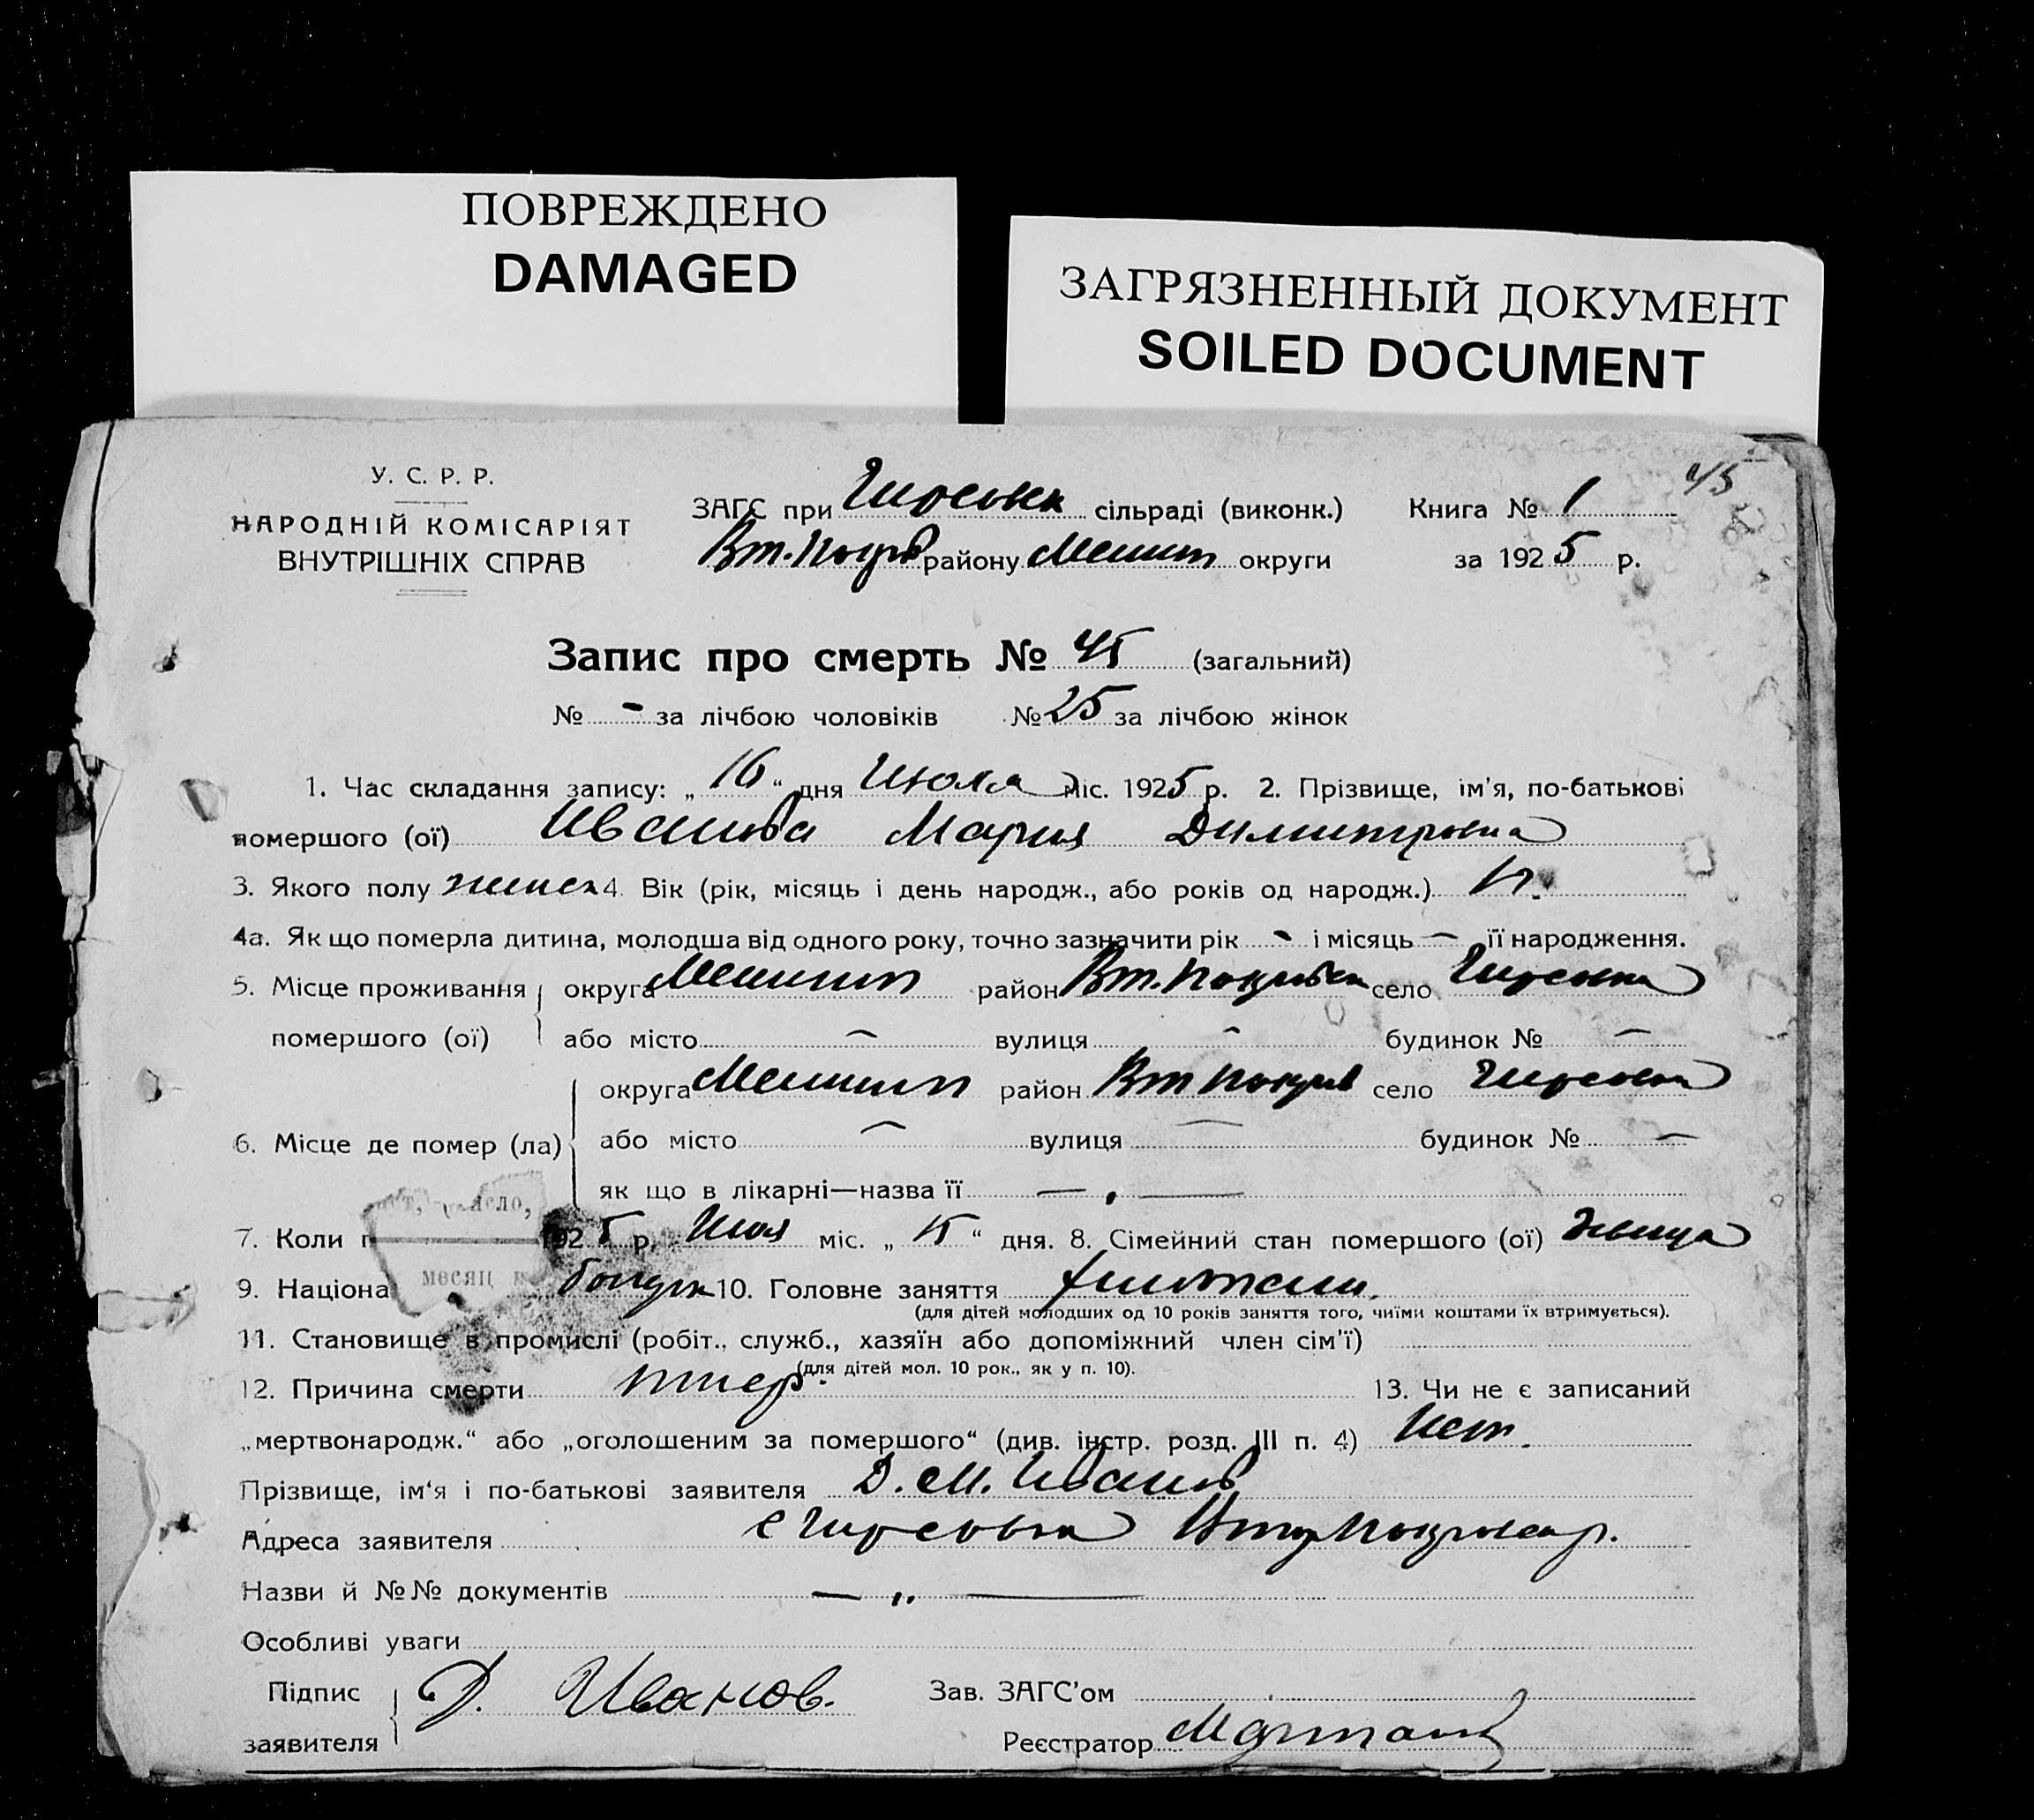 ПОВРЕЖДЕНО
DAMAGED
ЗАГРЯЗНЕННЫЙ ДОКУМЕНТ
SOILED DOCUMENT
45
У. С. Р. Р.
НАРОДНІЙ КОМІСАРІЯТ
ВНУТРІШНІХ СПРАВ
ЗАГС при Гирсовск сільраді (виконк.) Книга № 1
району округи за 1925 р.
Запис про смерть № 45 (загальний)
№ - за лічбою чоловіків № 25 за лічбою жінок
1. Час складання запису: „16“ дня Июля міс. 1925 р. 2. Прізвище, ім'я, по-батькові
помершого (ої) Иванова Мария Димитровна
3. Якого полу женск 4. Вік (рік, місяць і день народж., або років од народж.)
4а. Як що померла дитина, молодша від одного року, точно зазначити рік - і місяць — її народження.
5. Місце проживання округа район село Гирсовка
помершого (ої) або місто — вулиця — будинок № —
округа район село Гирсовка
6. Місце де помер (ла) або місто — вулиця — будинок № —
як що в лікарні—назва її — „ —
7. Коли 1925 р. Июля міс. „15“ дня. 8. Сімейний стан помершого (ої) девица
месяц
9. Націона 10. Головне заняття
(для дітей молодших од 10 років заняття того, чиїми коштами їх втримується).
11. Становище в промислі (робіт., служб., хазяїн або допоміжний член сім'ї)
(для дітей мол. 10 рок., як у п. 10).
12. Причина смерти 13. Чи не є записаний
„мертвонародж.“ або „оголошеним за помершого“ (див. інстр. розд. III п. 4) Нет.
Прізвище, ім'я і по-батькові заявителя Д. М. Иванов
Адреса заявителя с Гирсовка
Назви й №№ документів — „ —
Особливі уваги
Підпис Д. Иванов. Зав. ЗАГС'ом
заявителя Реєстратор